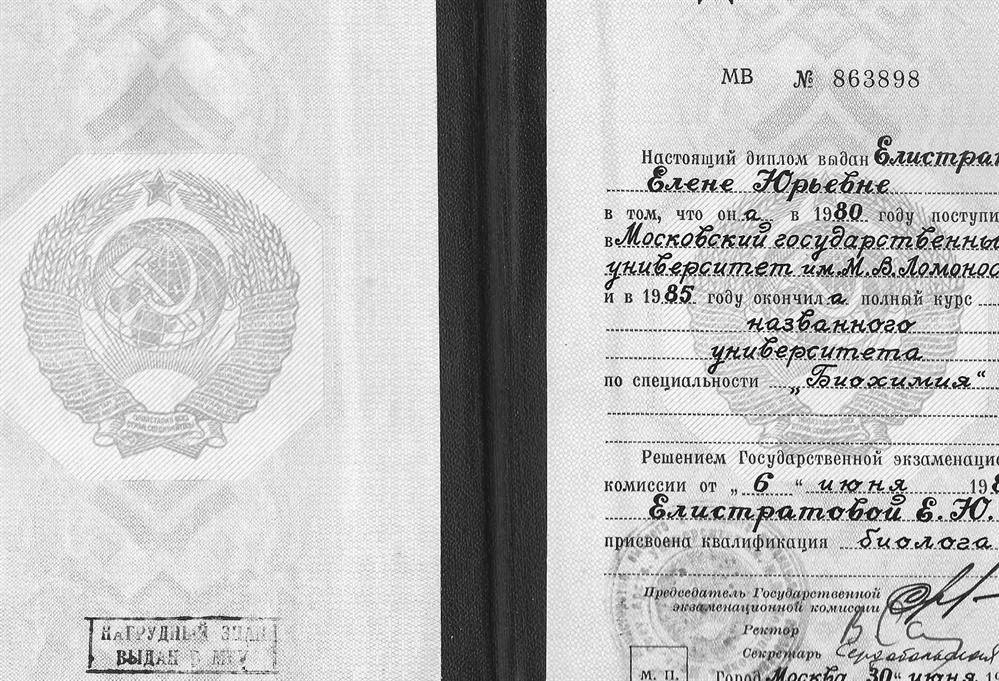 НАГРУДНЫЙ ЗНАК
ВЫДАН В МГУ
МВ № 863898
Настоящий диплом выдан Елистрат
Елене Юрьевне
в том, что он а в 1980 году поступи
в Московский государственны
университет им. М. В. Ломонос
и в 1985 году окончил а полный курс
названного
университета
по специальности „Биохимия“
Решением Государственной экзаменацио
комиссии от „ 6 “ июня 198
Елистратовой Е. Ю.
присвоена квалификация биолога
Председатель Государственной
экзаменационной комиссии
Ректор
Секретарь
М. П.
Город Москва 30 “ июня 19